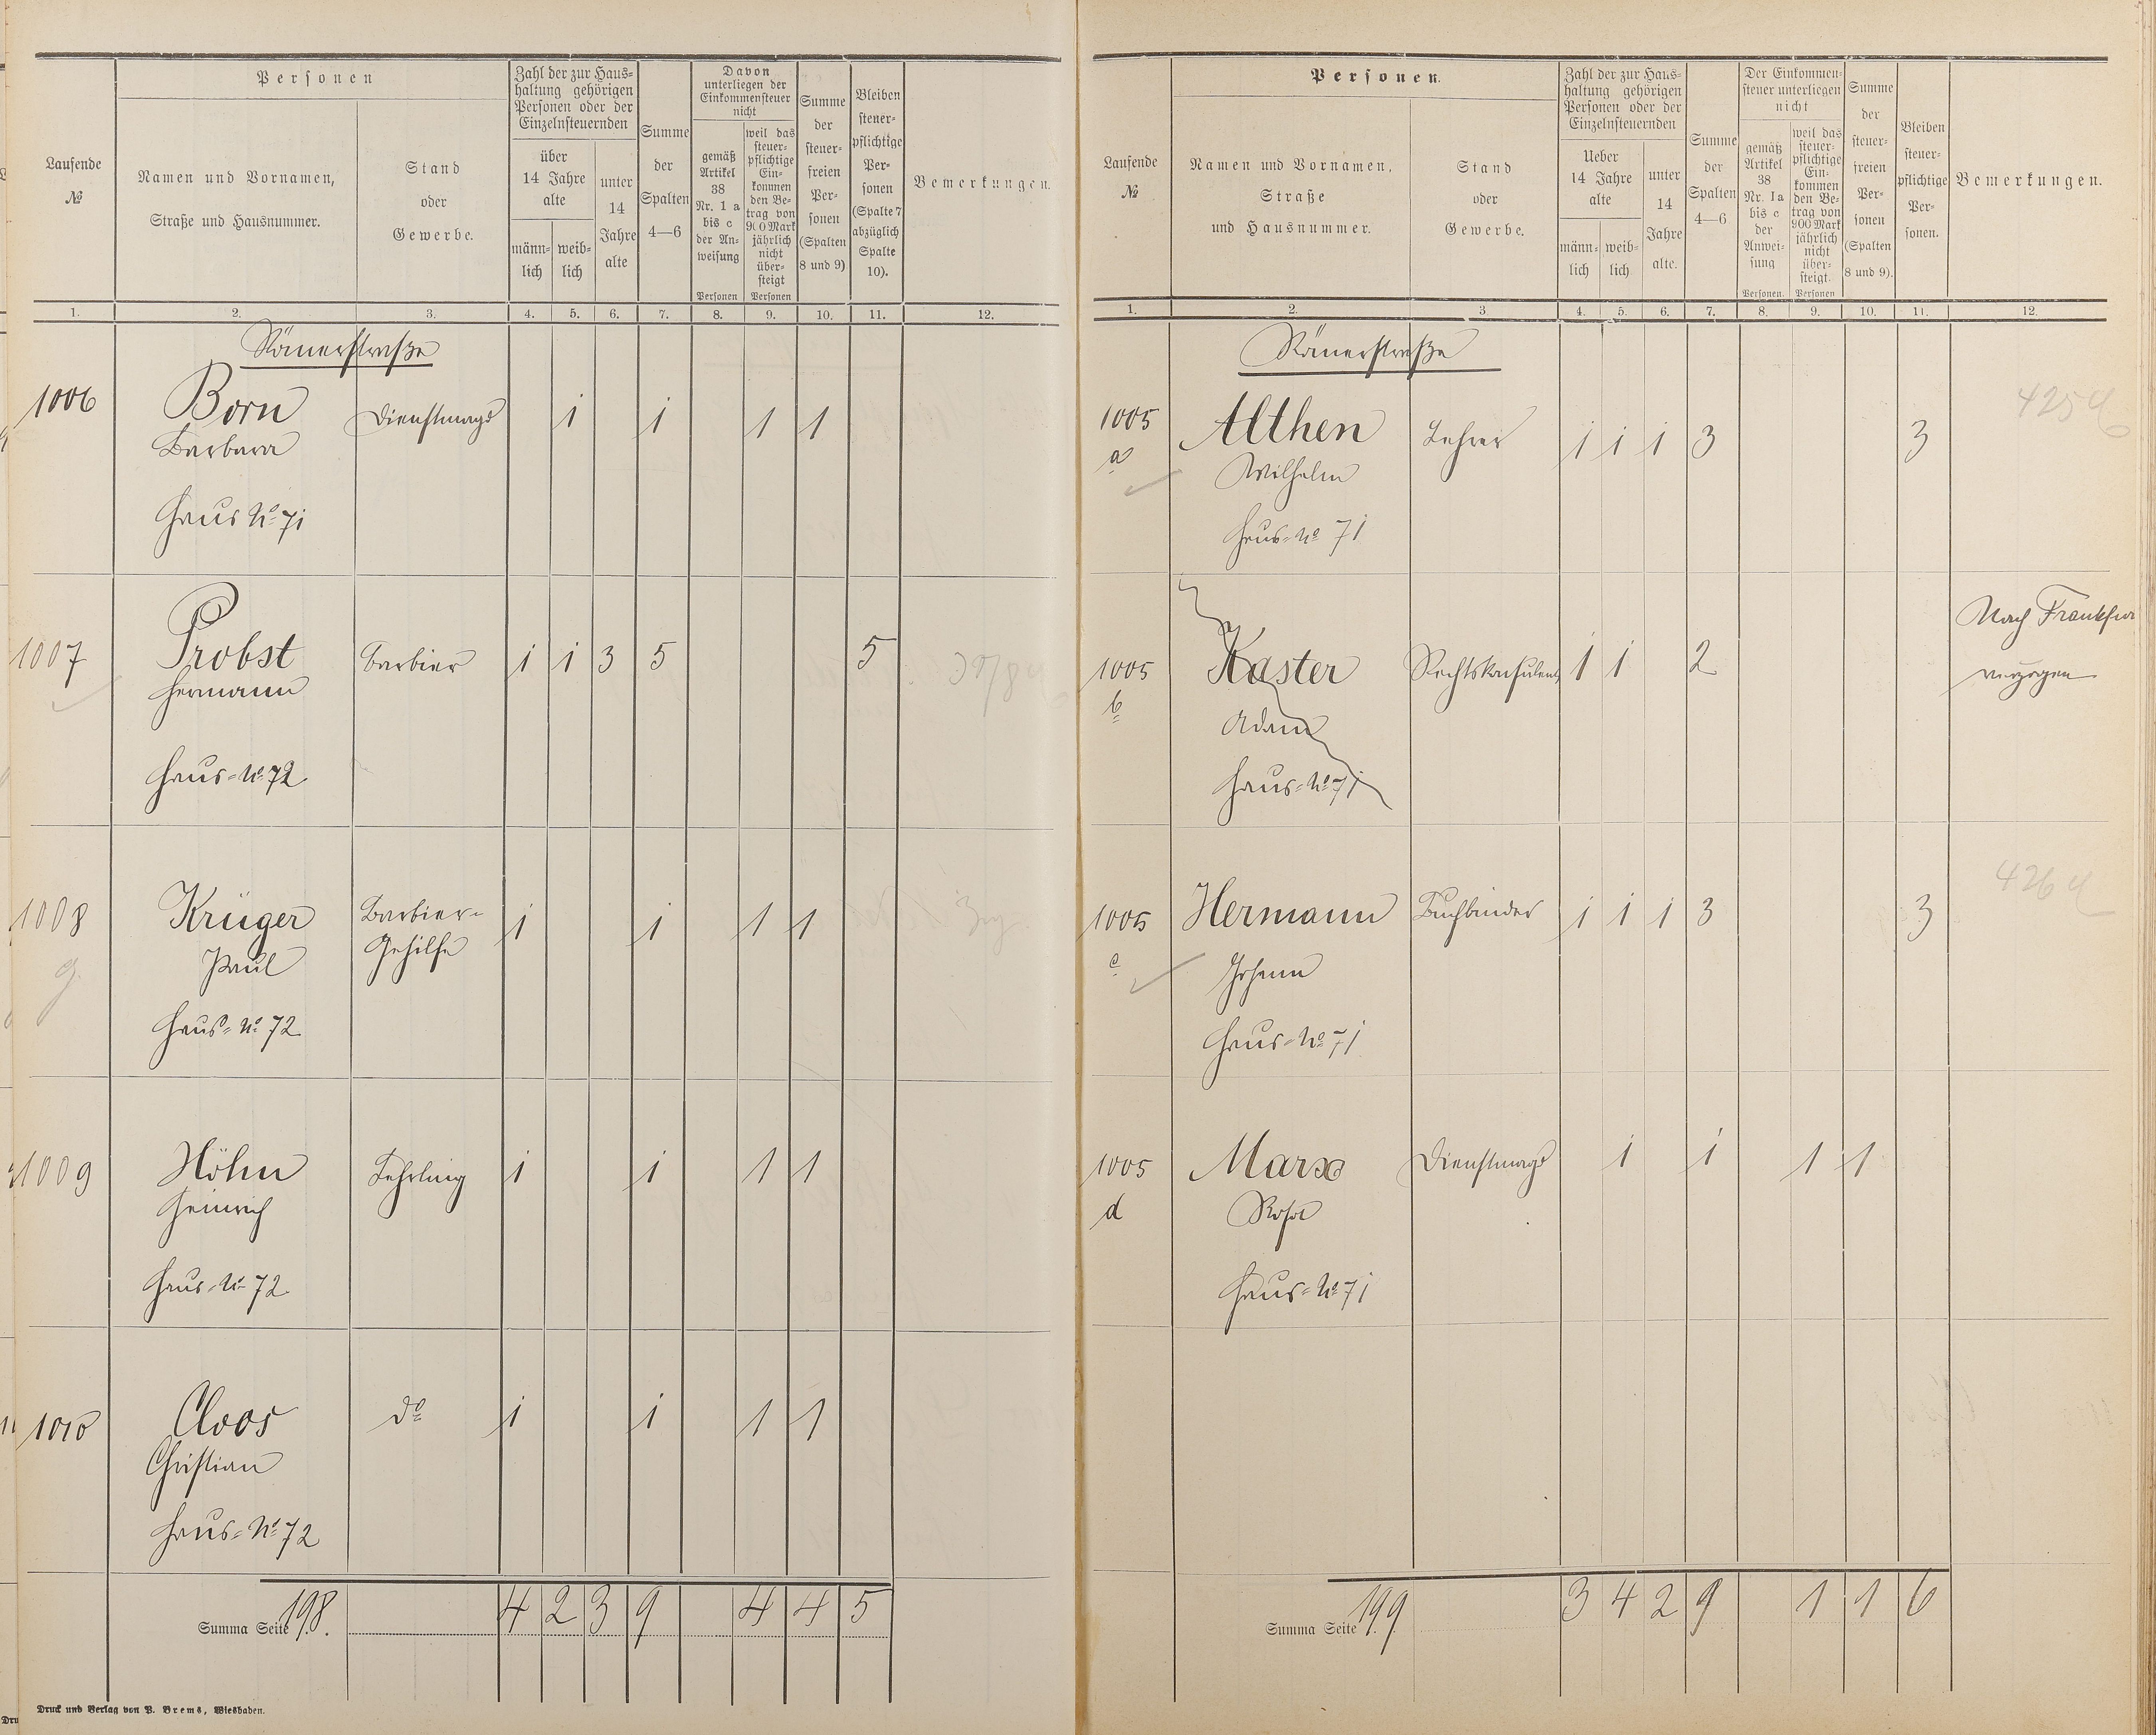 Personen
Laufende
№
Namen und Vornamen,
Straße und Hausnummer.
Stand
oder
Gewerbe.
Zahl der zur Haus=
haltung gehörigen
Personen oder der
Einzelnsteuernden
über
14 Jahre
alte
männ=
lich
weib=
lich
unter
14
Jahre
alte
Summe
der
Spalten
4—6
Davon
unterliegen der
Einkommensteuer
nicht
gemäß
Artikel
38
Nr. 1 a
bis c
der An=
weisung
Personen
weil das
steuer=
pflichtige
Ein=
kommen
den Be=
trag von
900 Mark
jährlich
nicht
über=
steigt
Personen
Summe
der
steuer=
freien
Per=
sonen
(Spalten
8 und 9)
Bleiben
steuer=
pflichtige
Per=
sonen
(Spalte 7
abzüglich
Spalte
10).
Bemerkungen.
1. 2. 3. 4. 5. 6. 7. 8. 9. 10. 11. 12.
Römerstraße
1006 Born Dienstmagd 1 1 1 1
Barbara
Haus No 71
1007 Probst Barbier 1 1 3 5 5
Hermann
Haus=No 72
1008 Krüger Barbier= 1 1 1 1
Paul Gehilfe
Haus=No 72
1009 Höhn Lehrling 1 1 1 1
Heinrich
Haus=No 72
1010 Cloos do 1 1 1 1
Christian
Haus=No 72
Summa Seite 198. 4 2 3 9 4 4 5
Druck und Verlag von P. Brems, Wiesbaden.
Personen.
Laufende
№
Namen und Vornamen,
Straße
und Hausnummer.
Stand
oder
Gewerbe.
Zahl der zur Haus=
haltung gehörigen
Personen oder der
Einzelnsteuernden
Ueber
14 Jahre
alte
männ=
lich
weib=
lich
unter
14
Jahre
alte.
Summe
der
Spalten
4—6
Der Einkommen=
steuer unterliegen
nicht
gemäß
Artikel
38
Nr. 1a
bis c
der
Anwei=
sung
Personen.
weil das
steuer=
pflichtige
Ein=
kommen
den Be=
trag von
900 Mark
jährlich
nicht
über=
steigt.
Personen
Summe
der
steuer=
freien
Per=
sonen
(Spalten
8 und 9).
Bleiben
steuer=
pflichtige
Per=
sonen.
Bemerkungen.
1. 2. 3 4. 5. 6. 7. 8. 9. 10. 11. 12.
Römerstraße
1005 Althen Lehrer 1 1 1 3 3 425
a Wilhelm
Haus=No 71
Nach
1005 Kaster Rechtskonsulent 1 1 2 verzogen
b Adam
Haus=No 71
1005 Hermann Buchbinder 1 1 1 3 3 426
c Johann
Haus=No 71
1005 Marx Dienstmagd 1 1 1 1
d Rosa
Haus=No 71
Summa Seite 199 3 4 2 9 1 1 6